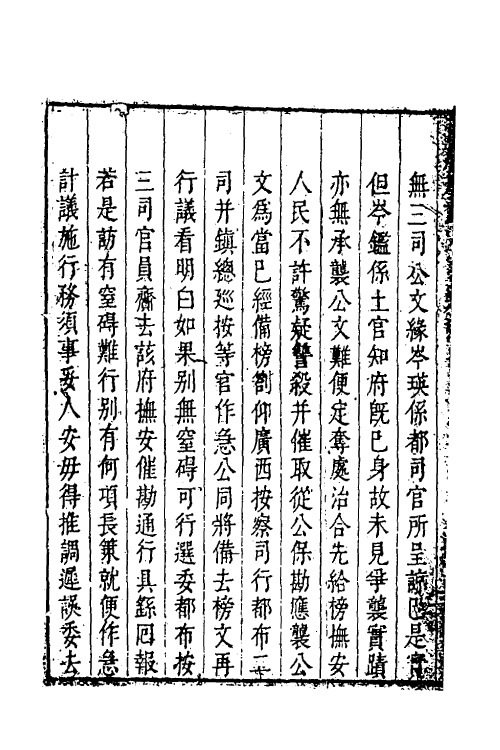 無三司公文緣岑瑛係都司官所呈諒已是實
但岑鑑係土官知府旣已身故未見爭襲實蹟
亦無承襲公文難便定奪處治合先給榜撫安
人民不許驚疑讐殺并催取從公保勘應襲公
文爲當已經備榜劄仰廣西按察司行都布二
司并鎮總巡按等官作急公同將備去榜文再
行議看明白如果别無窒碍可行選委都布按
三司官員齎去該府撫安催勘通行具繇囘報
若是訪有窒碍難行别有何項長筞就便作急
計議施行務須事妥人安毋得推調遲誤委去